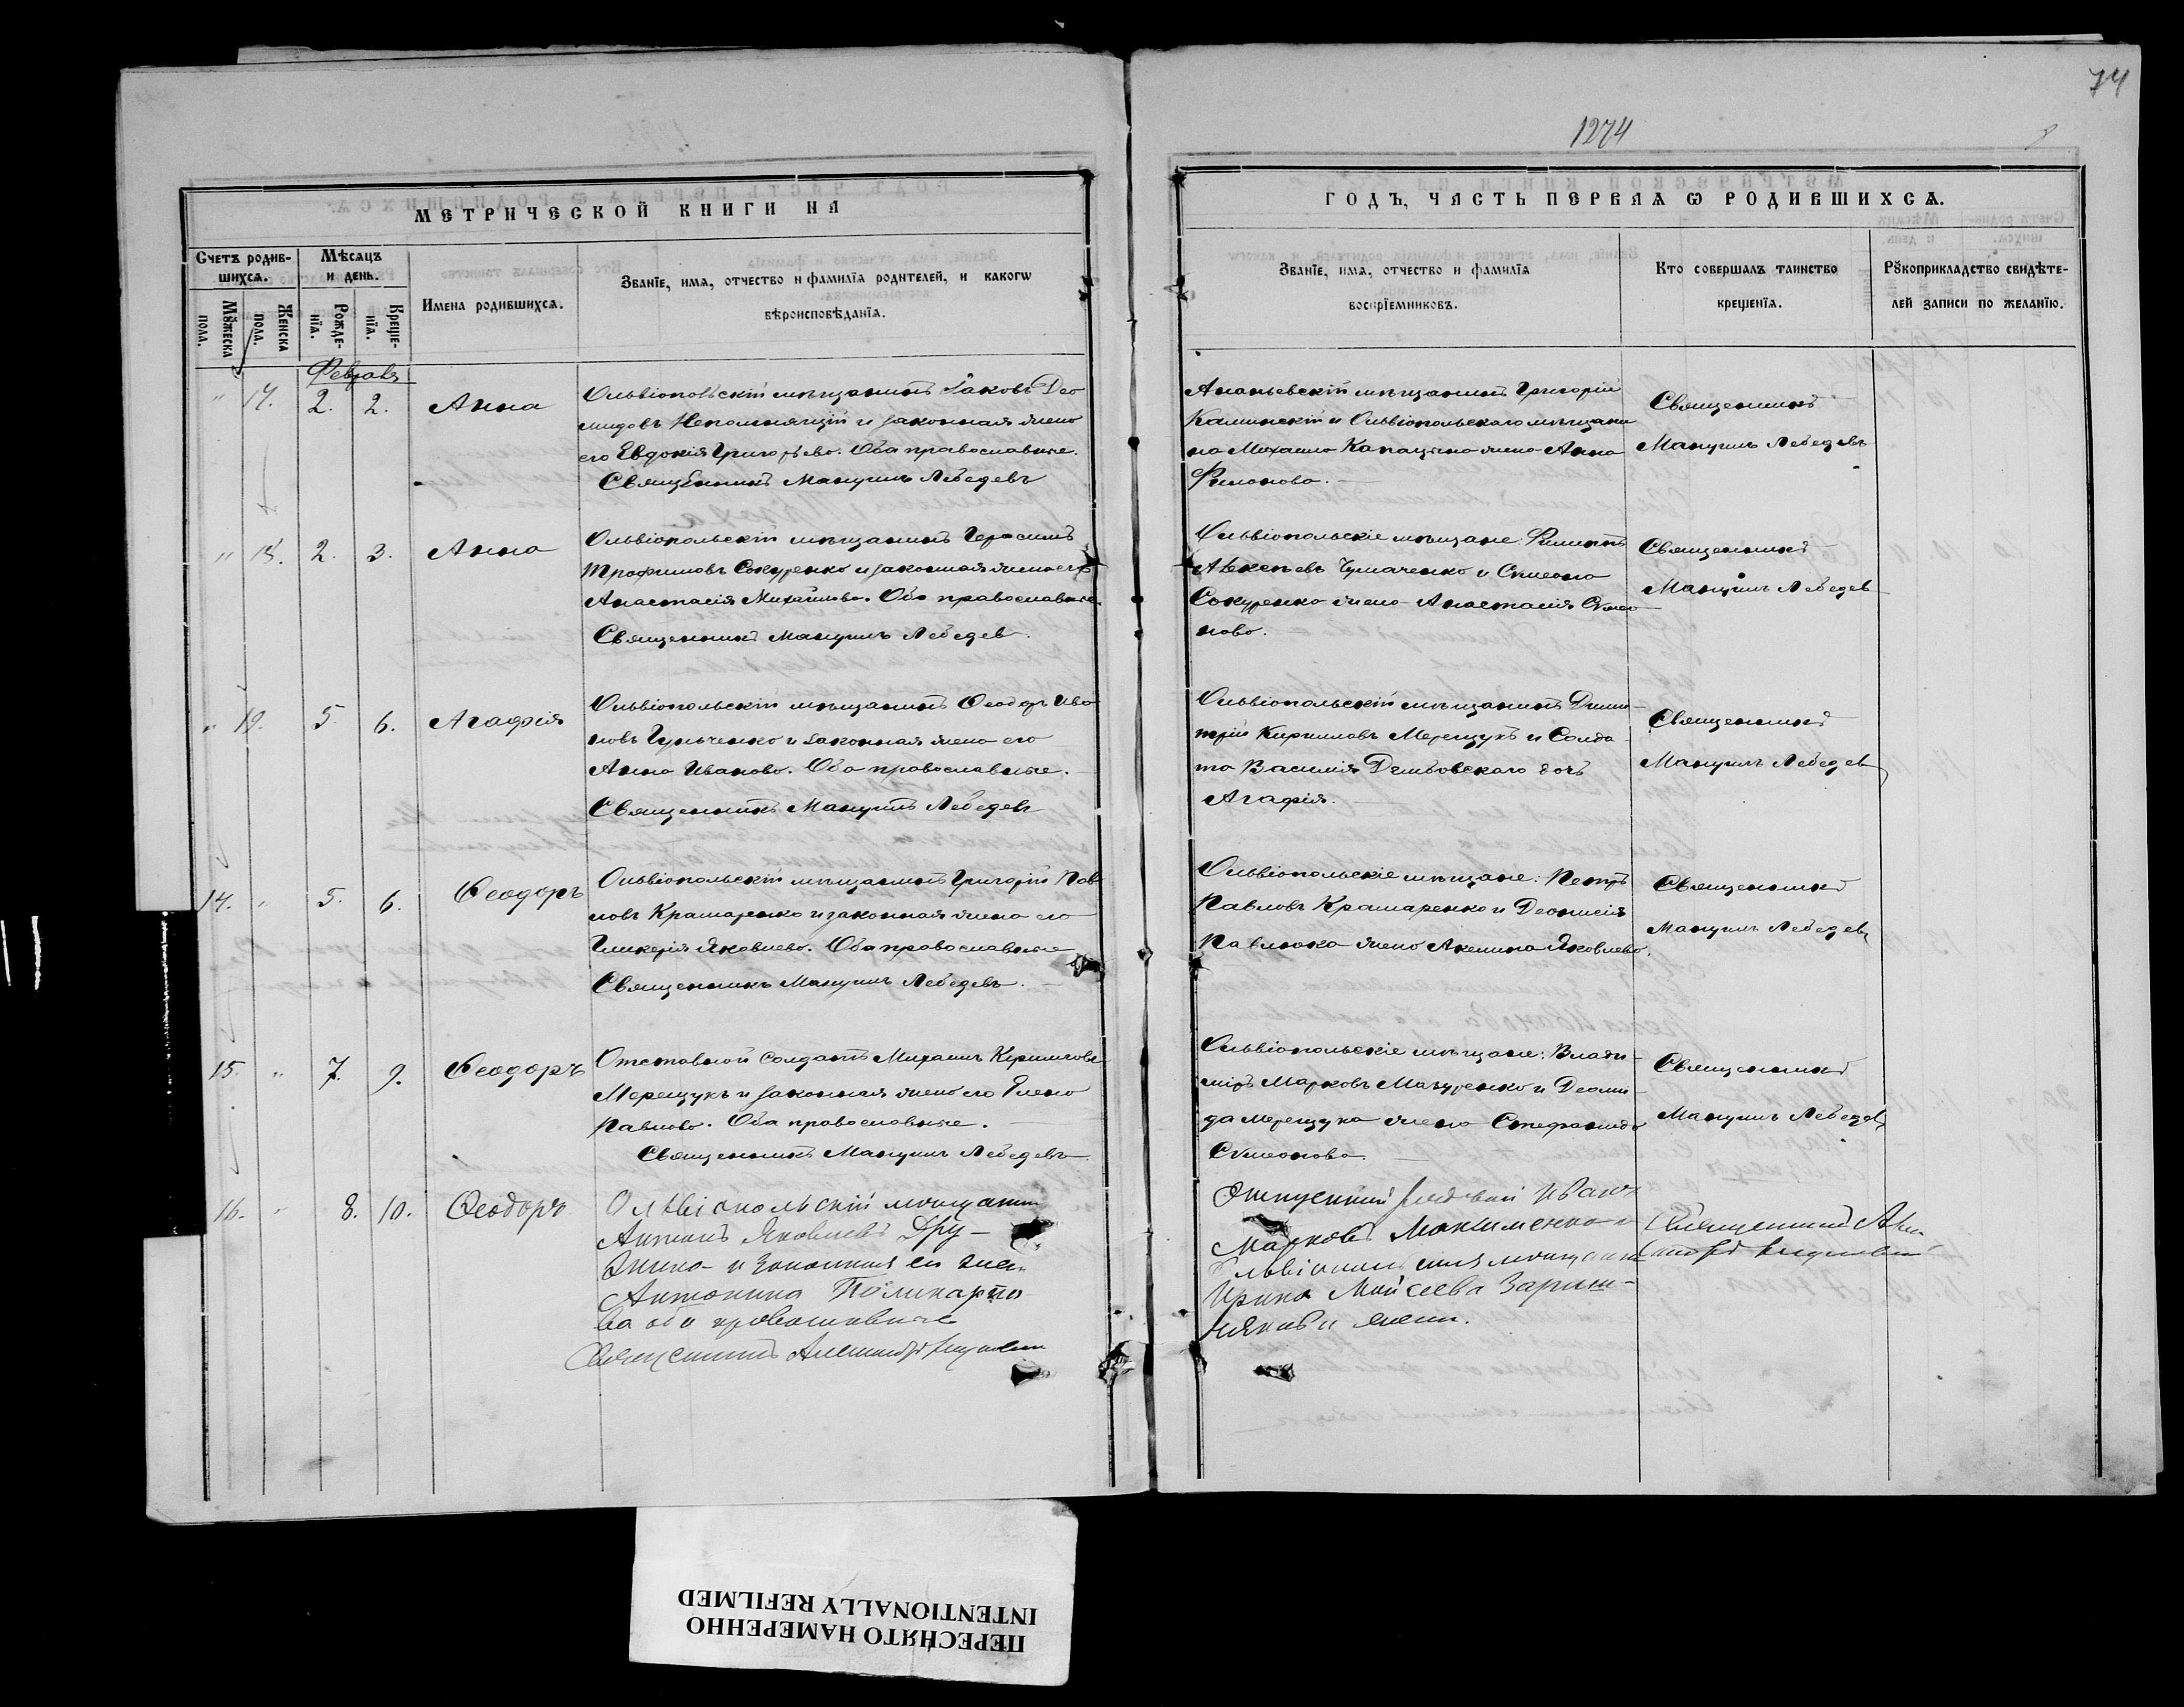 74
1274
МЕТРИЧЕСКОЙ КНИГИ НА
ГОДЪ, ЧАСТЬ ПЕРВАЯ Ѡ РОДИВШИХСЯ.
Счетъ родив-
шихся.
Мѣсяцъ
и день.
Мꙋжеска
пола.
Женска
пола.
Рожде-
нїя.
Креще-
нїя.
Имена родившихся.
Званїе, имя, отчество и фамилїя родителей, и какогѡ
вѣроисповѣданїя.
Званїе, имя, отчество и фамилїя
воспрїемниковъ.
Кто совершалъ таинство
крещенїя.
Рꙋкоприкладство свидѣте-
лей записи по желанїю.
Февраля
" 17. 2. 2. Анна
Ольвіопольскій мѣщанинъ Іаковъ Део
мидовъ Непомнящій и законная жена
его Евдокія Григорьева. Оба православные.
Священникъ Мануилъ Лебедевъ
Ананьевскій мѣщанинъ Григорій
Калинскій и Ольвіопольскаго мѣщани
на Михаила жена Анна
Филонова.
Священникъ
Мануилъ Лебедевъ
" 18. 2. 3. Анна
Ольвіопольскій мѣщанинъ Герасимъ
Трофимовъ Сокуренко и законная жена его
Анастасія Михайлова. Оба православные.
Священникъ Мануилъ Лебедев.
Ольвіопольскіе мѣщане: Филиппъ
Алексѣевъ Чумаченко и Сѵмеона
Сокуренко жена Анастасія Сѵмео
нова.
Священникъ
Мануилъ Лебедев
" 19. 5. 6. Агафія
Ольвіопольскій мѣщанинъ Ѳеодоръ Ива
новъ Гульченко и законная жена его
Анна Иванова. Оба православные.
Священникъ Мануилъ Лебедевъ
Ольвіопольскій мѣщанинъ Дими-
трій Кирилловъ Мерещукъ и Солда-
та Василія дочь
Агафія.
Священникъ
Мануилъ Лебедев
14. " 5. 6. Ѳеодоръ
Ольвіопольскій мѣщанинъ Григорій Пав
ловъ Крамаренко и законная жена его
Гликерія Яковлева. Оба православные
Священникъ Мануилъ Лебедевъ.
Ольвіопольскіе мѣщане: Петръ
Павловъ Крамаренко и Деонисія
Павлюка жена Акелина Яковлева.
Священникъ
Мануилъ Лебедев
15. " 7. 9. Ѳеодоръ
Отставной солдатъ Михаилъ Кирилловъ
Мерещукъ и законная жена его Елена
Павлова. Оба православные.
Священникъ Мануилъ Лебедевъ
Ольвіопольскіе мѣщане: Влади-
міръ Марковъ Мазуренко и Деоми-
да Мерещука жена Стефанида
Сѵмеонова.
Священникъ
Мануилъ Лебедев
16. " 8. 10. Ѳеодоръ
Ольвіопольскій мѣщанин
Антонъ Яковлевъ Дру-
и законная его жена
Антонина Поликарпо
ва оба православные
Священникъ Александръ
рядовой Иванъ
Марковъ Максименко и
Ирина Моисеева
жена.
Священникъ Але
ПЕРЕСНЯТО НАМЕРЕННО
INTENTIONALLY REFILMED